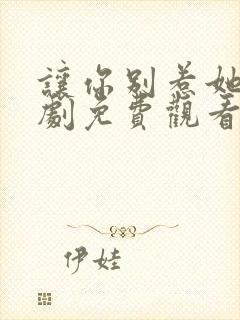 讓你別惹她
劇免費觀看
伊娃